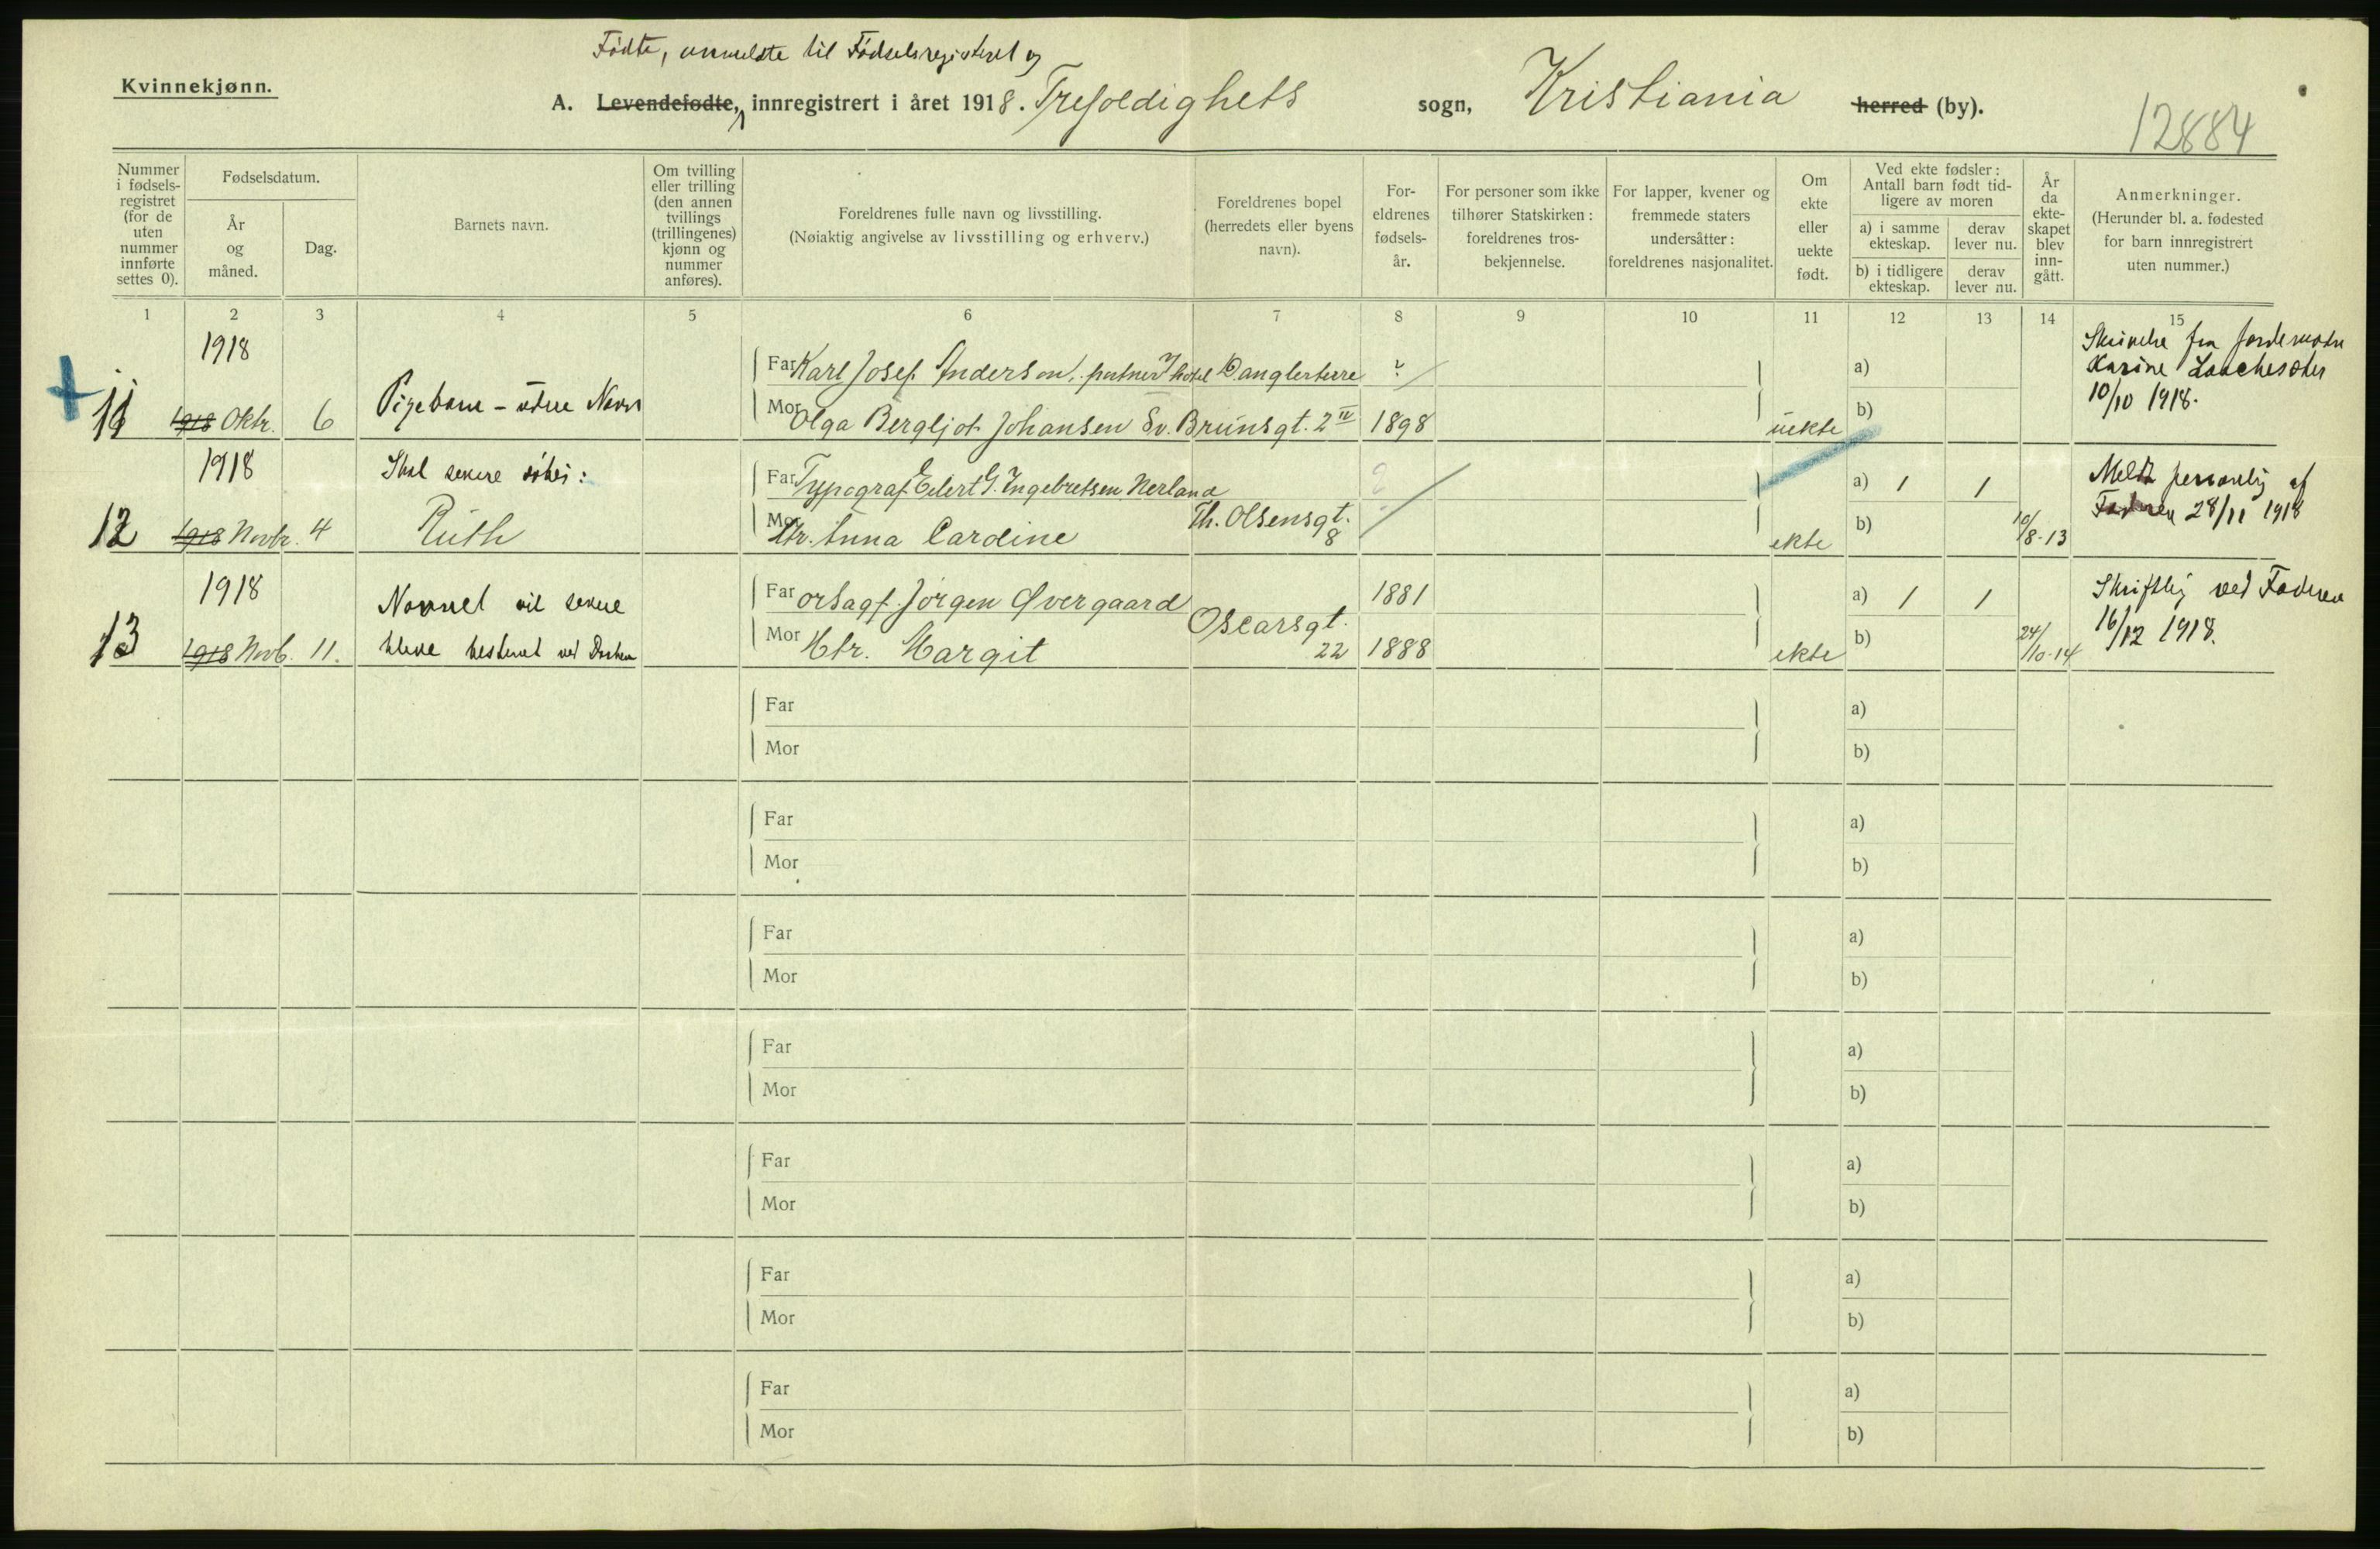 Kvinnekjønn.
Fødte, anmeldte til Fødselsregisteret og
A. Levendefødte, innregistrert i året 1918. Trefoldighets sogn, Kristiania herred (by).
12884
Nummer i fødselsregistret (for de uten nummer innførte settes 0).
Fødselsdatum.
År og måned.
Dag.
Barnets navn.
Om tvilling eller trilling (den annen tvillings (trillingenes) kjønn og nummer anføres).
Foreldrenes fulle navn og livsstilling.
(Nøiaktig angivelse av livsstilling og erhverv.)
Foreldrenes bopel (herredets eller byens navn).
Foreldrenes fødselsår.
For personer som ikke tilhører Statskirken: foreldrenes trosbekjennelse.
For lapper, kvener og fremmede staters undersåtter: foreldrenes nasjonalitet.
Om ekte eller uekte født.
Ved ekte fødsler: Antall barn født tidligere av moren
a) i samme ekteskap.
derav lever nu.
b) i tidligere ekteskap.
derav lever nu.
År da ekteskapet blev inngått.
Anmerkninger.
(Herunder bl. a. fødested for barn innregistrert uten nummer.)
1 2 3 4 5 6 7 8 9 10 11 12 13 14 15
1918
11 1918 Oktr. 6 Pigebarn - uden Navn
Far Karl Josef Anderson, portner Hotel Danglerterre ?
Mor Olga Bergljot Johansen Sv. Brunsgt. 2 IV 1898
uekte
a)
b)
Skrivelse fra Jordemoder
Karine
10/10 1918.
1918 Skal senere døbes:
12 1918 Novbr. 4 Ruth
Far Typograf Eilert G. Ingebretsen Nerland
Mor Htr. Anna Caroline Th. Olsensgt. 8
ekte
a) 1 1
b)
10/8-13
Meldt personlig af
Faderen 28/11 1918
1918 Navnet vil senere
13 1918 Novb. 11. blive bestemt ved Daaben
Far Jørgen Øvergaard 1881
Oscarsgt. 22
Mor Htr. Margit 1888
ekte
a) 1 1
b)
24/10-14
Skriftlig ved Faderen
16/12 1918.
Far a)
Mor b)
Far a)
Mor b)
Far a)
Mor b)
Far a)
Mor b)
Far a)
Mor b)
Far a)
Mor b)
Far a)
Mor b)